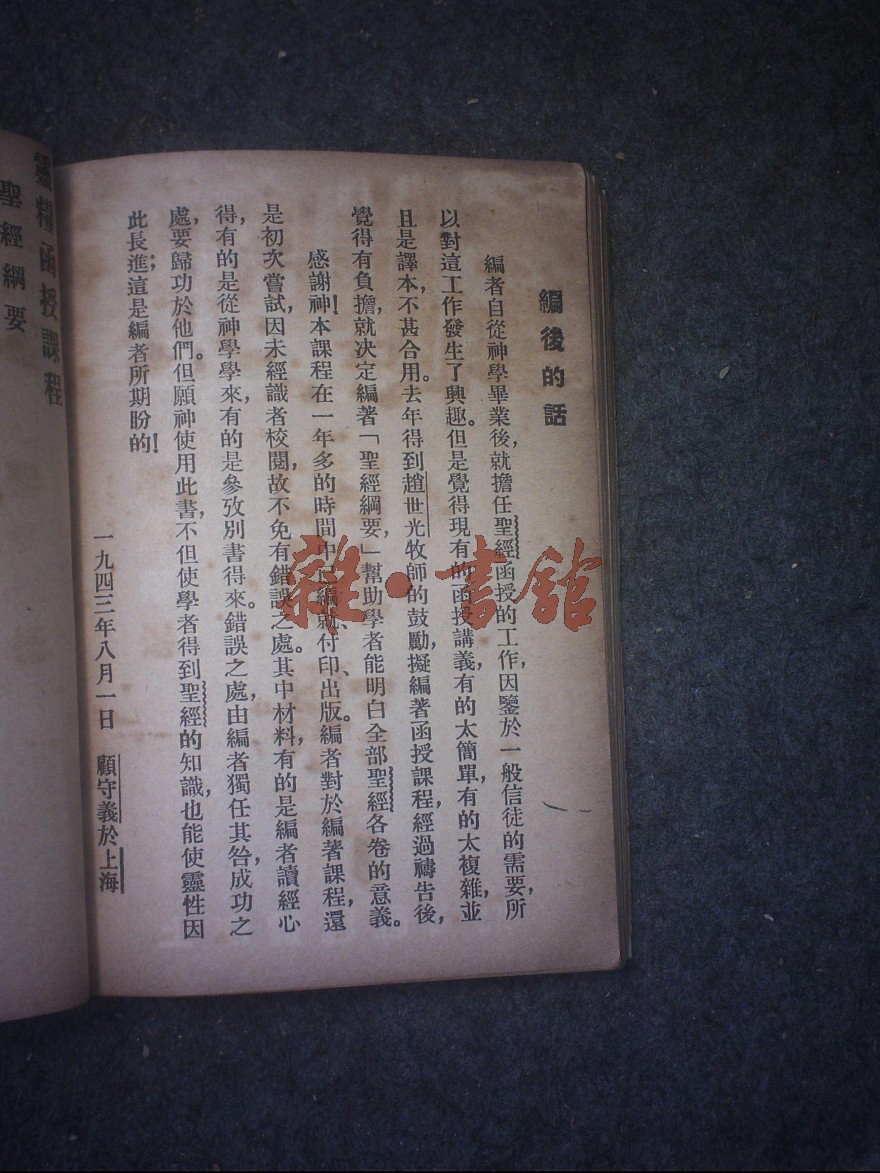 編後的話
編者自從神學畢業後,就擔任聖經函授的工作,因鑒於一般信徒的需要,所
以對這工作發生了興趣。但是覺得現有的函授講義,有的太簡單,有的太複雜,並
且是譯本,不甚合用。去年得到趙世光牧師的鼓勵,擬編著函授課程,經過禱告後,
覺得有負擔,就決定編著「聖經綱要,」幫助學者能明白全部聖經各卷的意義。
感謝神!本課程在一年多的時間中已編就、付印、出版。編者對於編著課程,還
是初次嘗試,因未經識者校閱,故不免有錯誤之處。其中材料,有的是編者讀經心
得,有的是從神學學來,有的是參攷別書得來。錯誤之處,由編者獨任其咎,成功之
處,要歸功於他們。但願神使用此書,不但使學者得到聖經的知識,也能使靈性因
此長進;這是編者所期盼的!
一九四三年八月一日 顧守義於上海
靈糧函授課程
聖經綱要
雜·書館